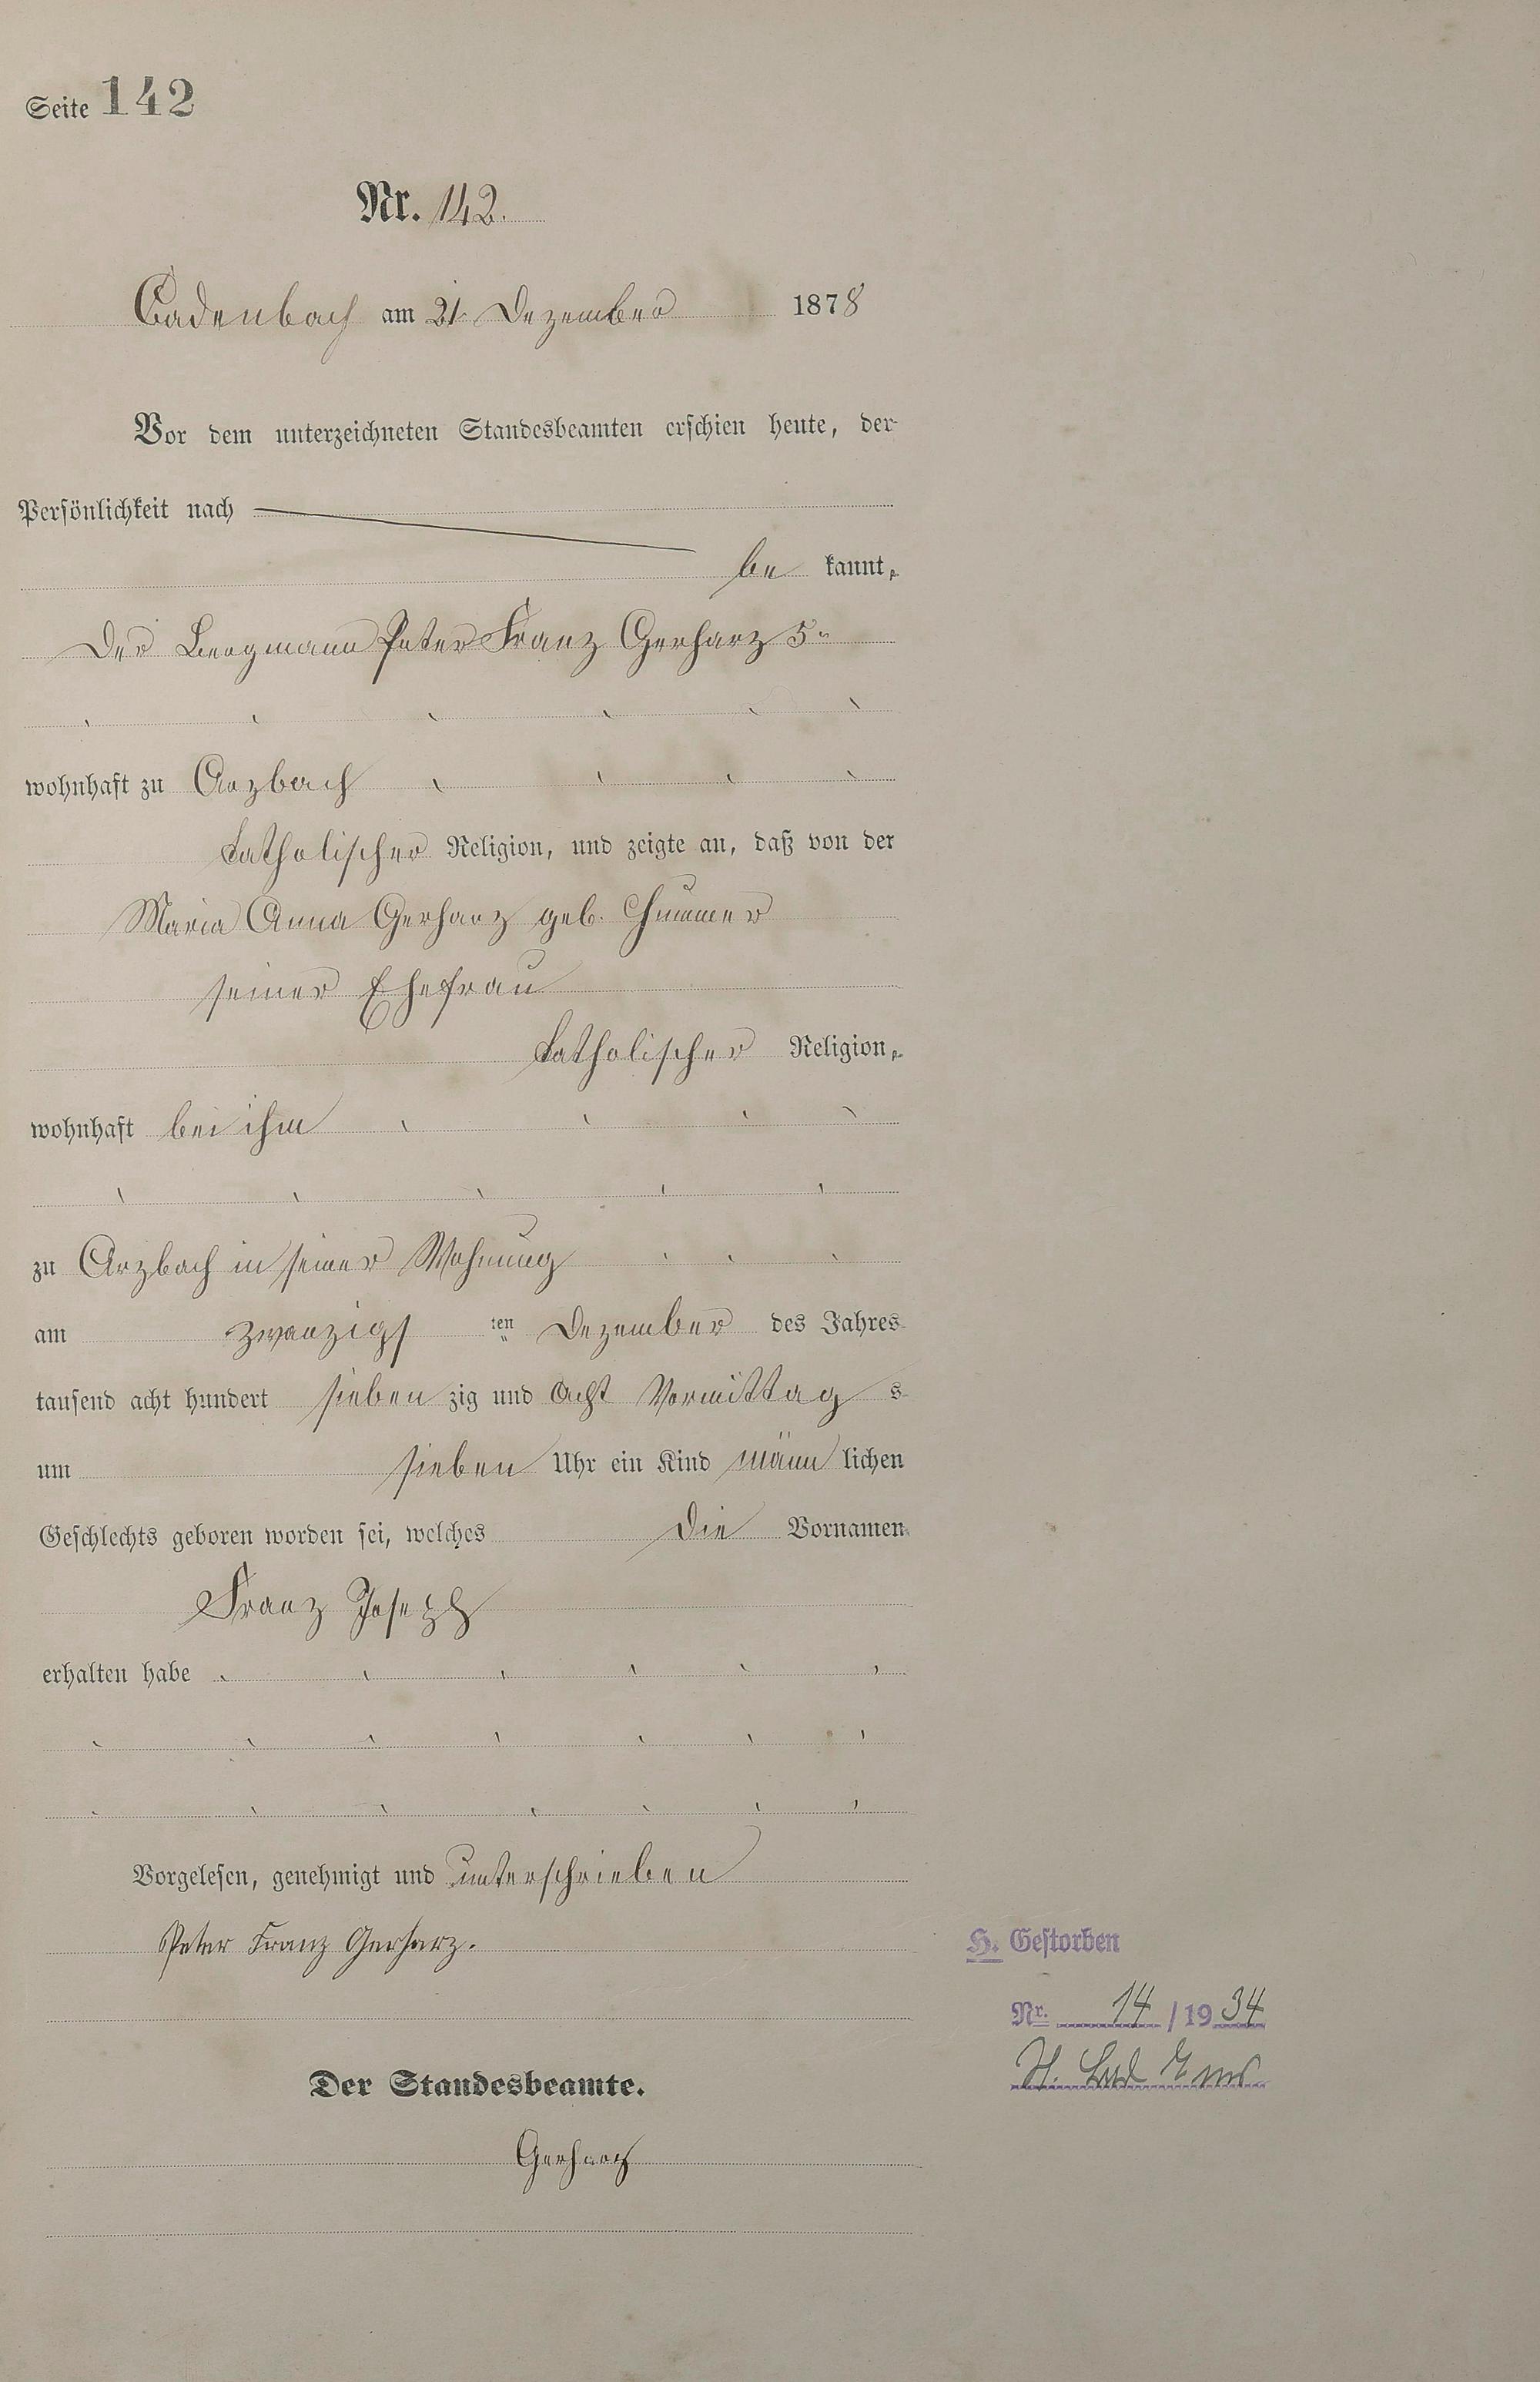 Seite 142
Nr. 142.
Cadenbach am 21. Dezember 1878
Vor dem unterzeichneten Standesbeamten erschien heute, der
Persönlichkeit nach
be kannt,
Der Bergmann Peter Franz Gerharz 5.
wohnhaft zu Arzbach
katholischer Religion, und zeigte an, daß von der
Maria Anna Gerharz geb.
seiner Ehefrau
katholischer Religion,
wohnhaft bei ihm
zu Arzbach in seiner Wohnung
am zwanzigs ten Dezember des Jahres
tausend acht hundert sieben zig und acht Vormittag s
um sieben Uhr ein Kind männ lichen
Geschlechts geboren worden sei, welches die Vornamen
Franz Joseph
erhalten habe
Vorgelesen, genehmigt und unterschrieben
Peter Franz Gerharz.
Der Standesbeamte.
Gerharz
H. Gestorben
Nr. 14 / 1934
St. Bad Ems